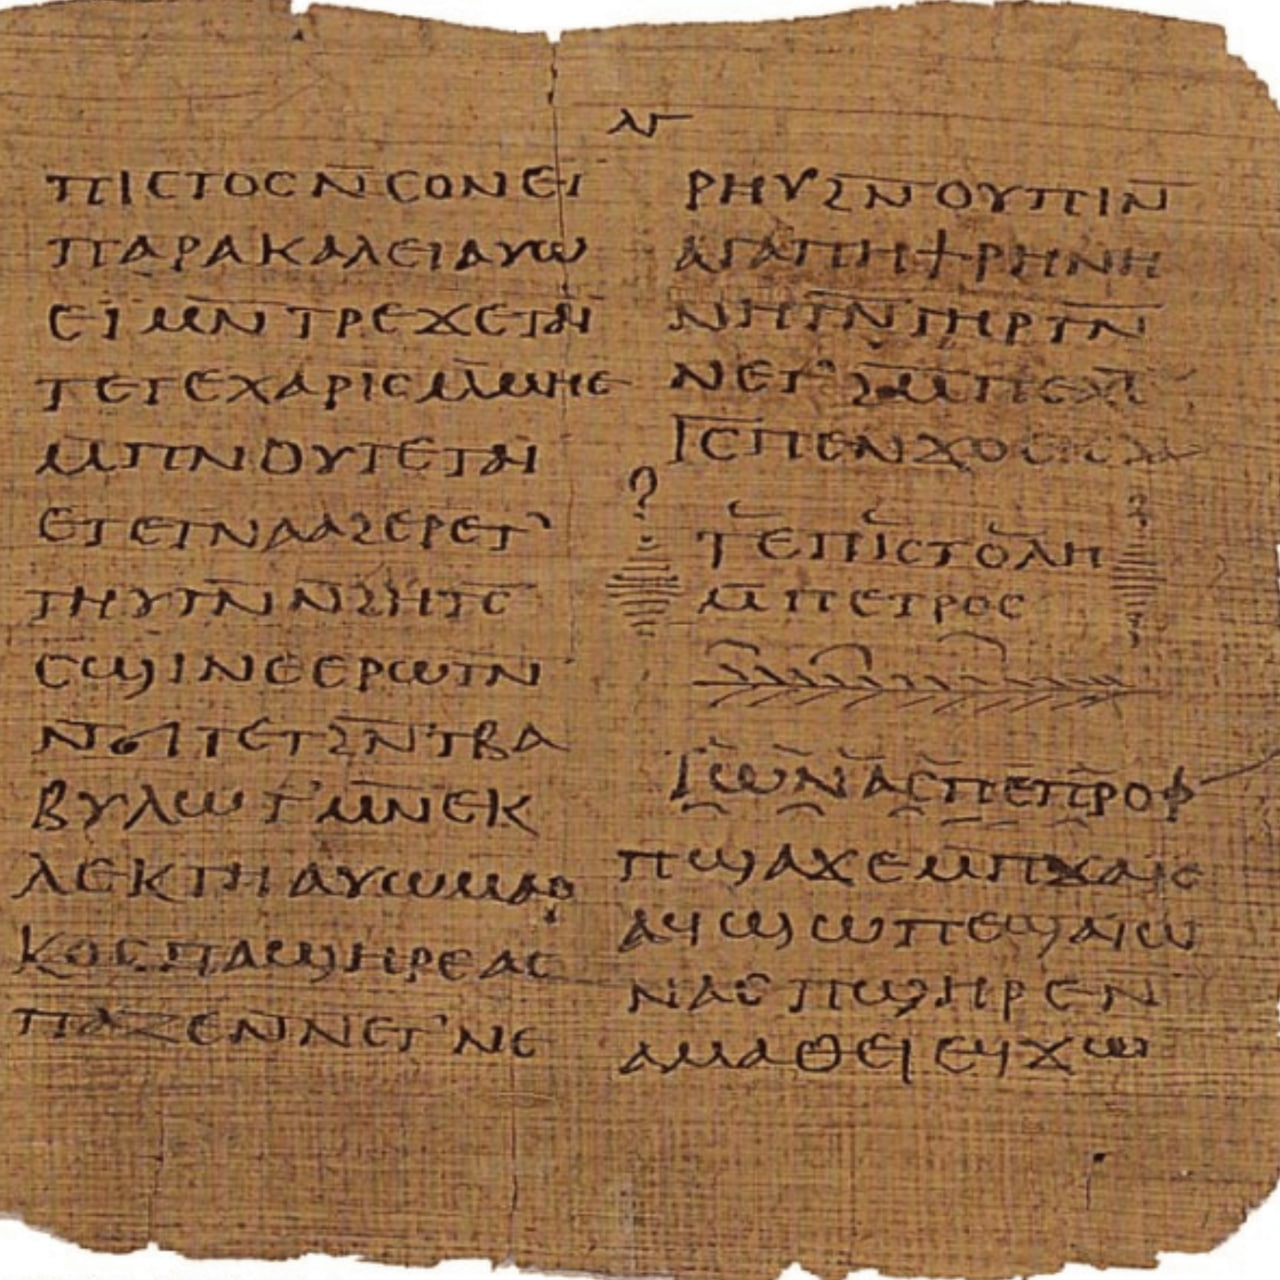 ⲗⲅ
ⲡⲓⲥⲧⲟⲥ ⲛ̄ⲥⲟⲛ ⲉⲓ
ⲡⲁⲣⲁⲕⲁⲗⲉⲓ ⲁⲩⲱ
ⲉⲓⲙⲛ̄ⲧⲣⲉ ϫⲉ ⲧⲁⲓ̈
ⲧⲉ ⲧⲉⲭⲁⲣⲓⲥ ⲙ̄ⲙⲏⲉ
ⲙ̄ⲡⲛⲟⲩⲧⲉ ⲧⲁⲓ̈
ⲉⲧⲉⲧⲛⲁⲁϩⲉⲣⲉⲧ
ⲧⲏⲩⲧⲛ̄ ⲛ̄ϩⲏⲧⲥ̄
ⲥϣⲓⲛⲉ ⲉⲣⲱⲧⲛ̄
ⲛ̄ϭⲓ ⲧⲉⲧϩⲛ̄ ⲧⲃⲁ
ⲃⲩⲗⲱⲛ ⲛ̄ⲉⲕ
ⲗⲉⲕⲧⲏ ⲁⲩⲱ ⲙⲁⲣ
ⲕⲟⲥ ⲡⲁϣⲏⲣⲉ ⲁⲥ
ⲡⲁⲍⲉ ⲛ̄ⲛⲉⲧⲛⲉ
ⲣⲏⲩ ϩⲛ̄ ⲟⲩⲡⲓ ⲛ̄
ⲁⲅⲁⲡⲏ ϯⲣⲏⲛⲏ
ⲛⲏⲧⲛ̄ ⲧⲏⲣⲧⲛ̄
ⲛⲉⲧϩⲙ̄ ⲡⲉⲭ̄ⲥ̄
ⲓ̄ⲥ̄ ⲡⲉⲛϫⲟⲉⲓⲥ
ⲧⲉⲡⲓⲥⲧⲟⲗⲏ
ⲙ̄ⲡⲉⲧⲣⲟⲥ
ⲓ̈ⲱⲛⲁⲥ ⲡⲉⲡⲣⲟⲫ
ⲡϣⲁϫⲉ ⲙ̄ⲡϫⲁⲓⲥ
ⲁϥϣⲱⲡⲉ ϣⲁ ⲓ̈ⲱ
ⲛⲁⲥ ⲡϣⲏⲣⲉ ⲛ̄
ⲁⲙⲁⲑⲉⲓ ⲉϥϫⲱ